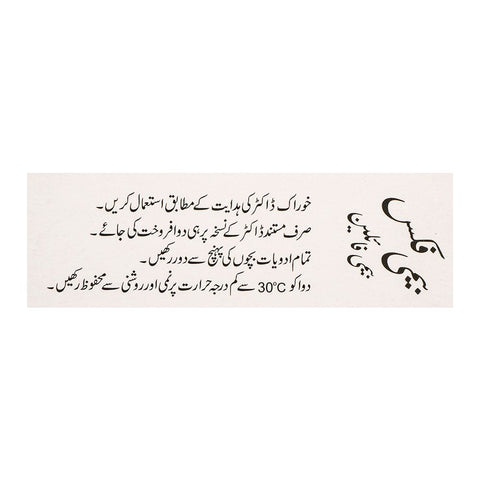 خوراک ڈاکٹر کی ہدایت کے مطابق استعمال کریں۔
صرف مستند ڈاکٹر کے نسخہ پر ہی دوا فروخت کی جائے۔
تمام ادویات بچوں کی پہنچ سے دور رکھیں۔
دوا کو 30°C سے کم درجہ حرارت پر نمی اور روشنی سے محفوظ رکھیں۔